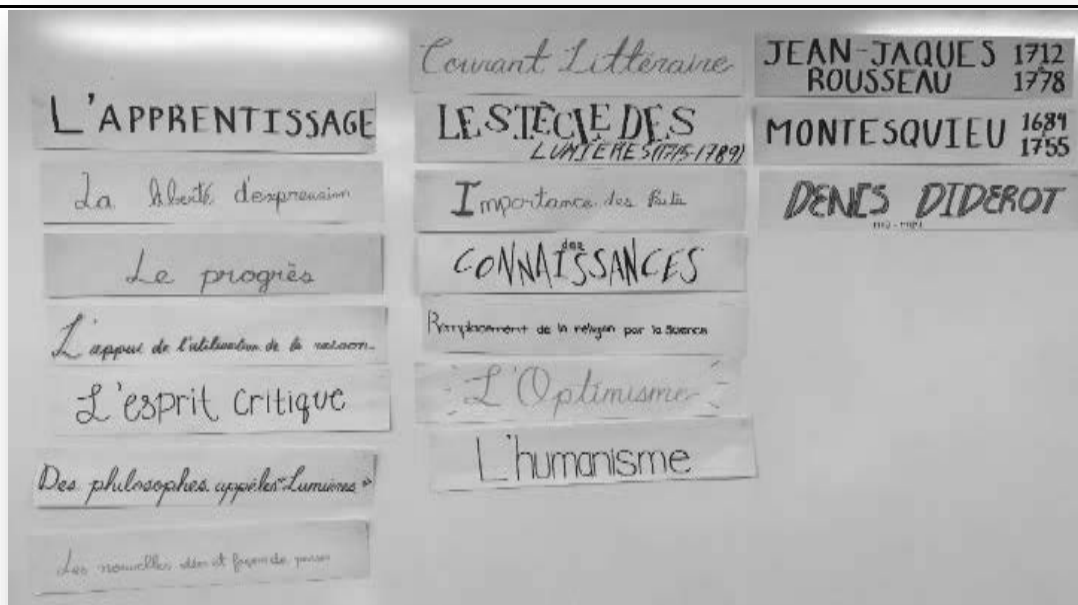 L'APPRENTISSAGE
La liberté d'expression
Le progrès
L'appui de l'utilisation de la raison
L'esprit critique
Des philosophes appelés "Lumières"
Les nouvelles et façon de penser
Courant Littéraire
LE SIÈCLE DES
LUMIÈRES (1715-1789)
Importance des faits
des
CONNAISSANCES
Remplacement de la religion par la Science
L'Optimisme
L'humanisme
JEAN-JAQUES 1712
ROUSSEAU 1778
MONTESQUIEU 1689
1755
DENIS DIDEROT